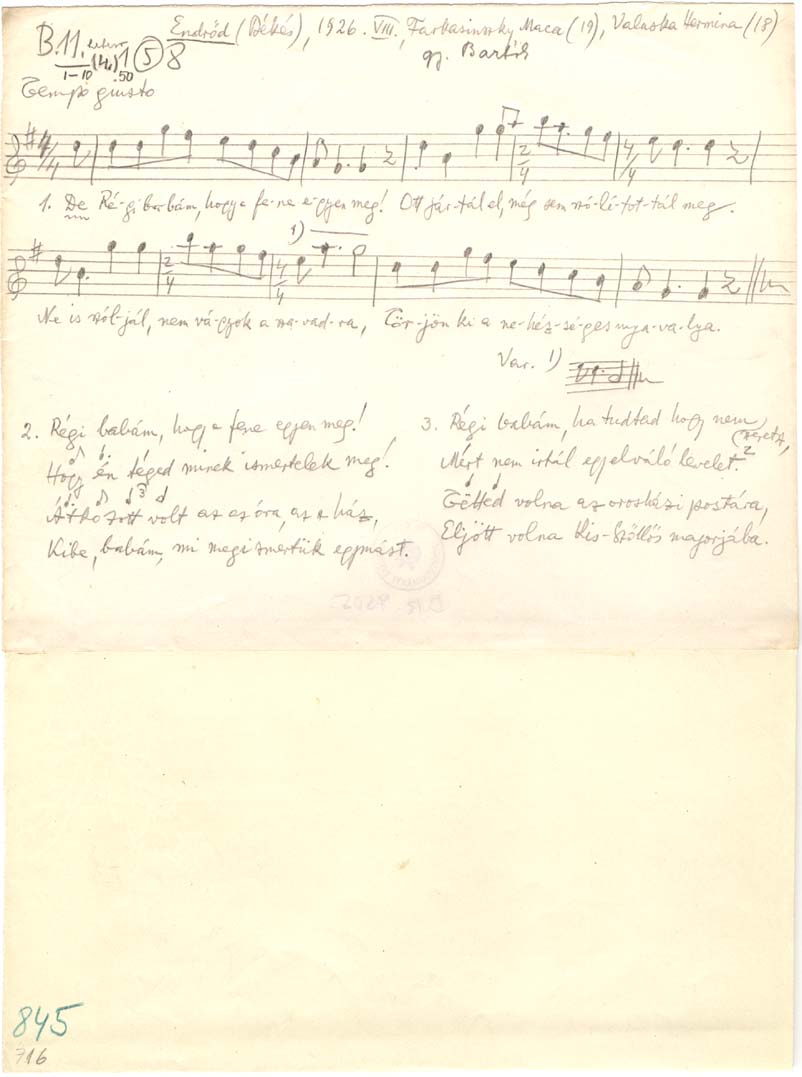 Endrőd (Békés), 1926. VIII., Farbasinszky Maca (19), Valuska Hermina (18)
gy. Bartók
B. 11. (4.) 1 5 8
1-10 .50
Tempo giusto
4/4 2/4 4/4
1. De Ré-gi ba-bám, hogy a fe-ne e-gyen meg! Ott jár-tál el, még sem szó-lí-tot-tál meg.
1)
2/4 4/4
Ne is szól-jál, nem vá-gyok a sza-vad-ra, Tör-jön ki a ne-héz-sé-ges nya-va-lya.
Var. 1)
2. Régi babám, hogy a fene egyen meg!
Hogy én téged minek ismertelek meg!
3
Átkozott volt az az óra, az a ház,
Kibe, babám, mi megismertük egymást.
3. Régi babám, ha tudtad hogy nem
(szeretsz,
Mért nem irtál egy elváló levelet.
Tetted volna az orosházi postára,
Eljött volna Kis-Szöllős majorjába.
845
716